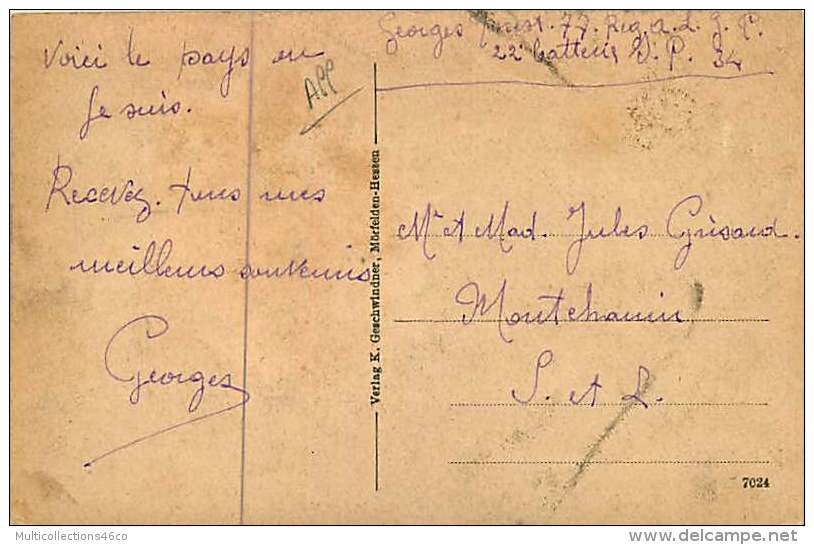 Voici le pays ou
Je suis.
Recevez. tous mes
meilleurs souvenirs
Georges
App
Verlag K. Geschwindner, Mörfelden-Hessen
Georges 77. Reg. a. L. G. P.
22e batterie S. P. 34
Mr et Mad. Jules Grisard.
Montchanin
S. et L.
7024
Multicollections46co
www.delcampe.net